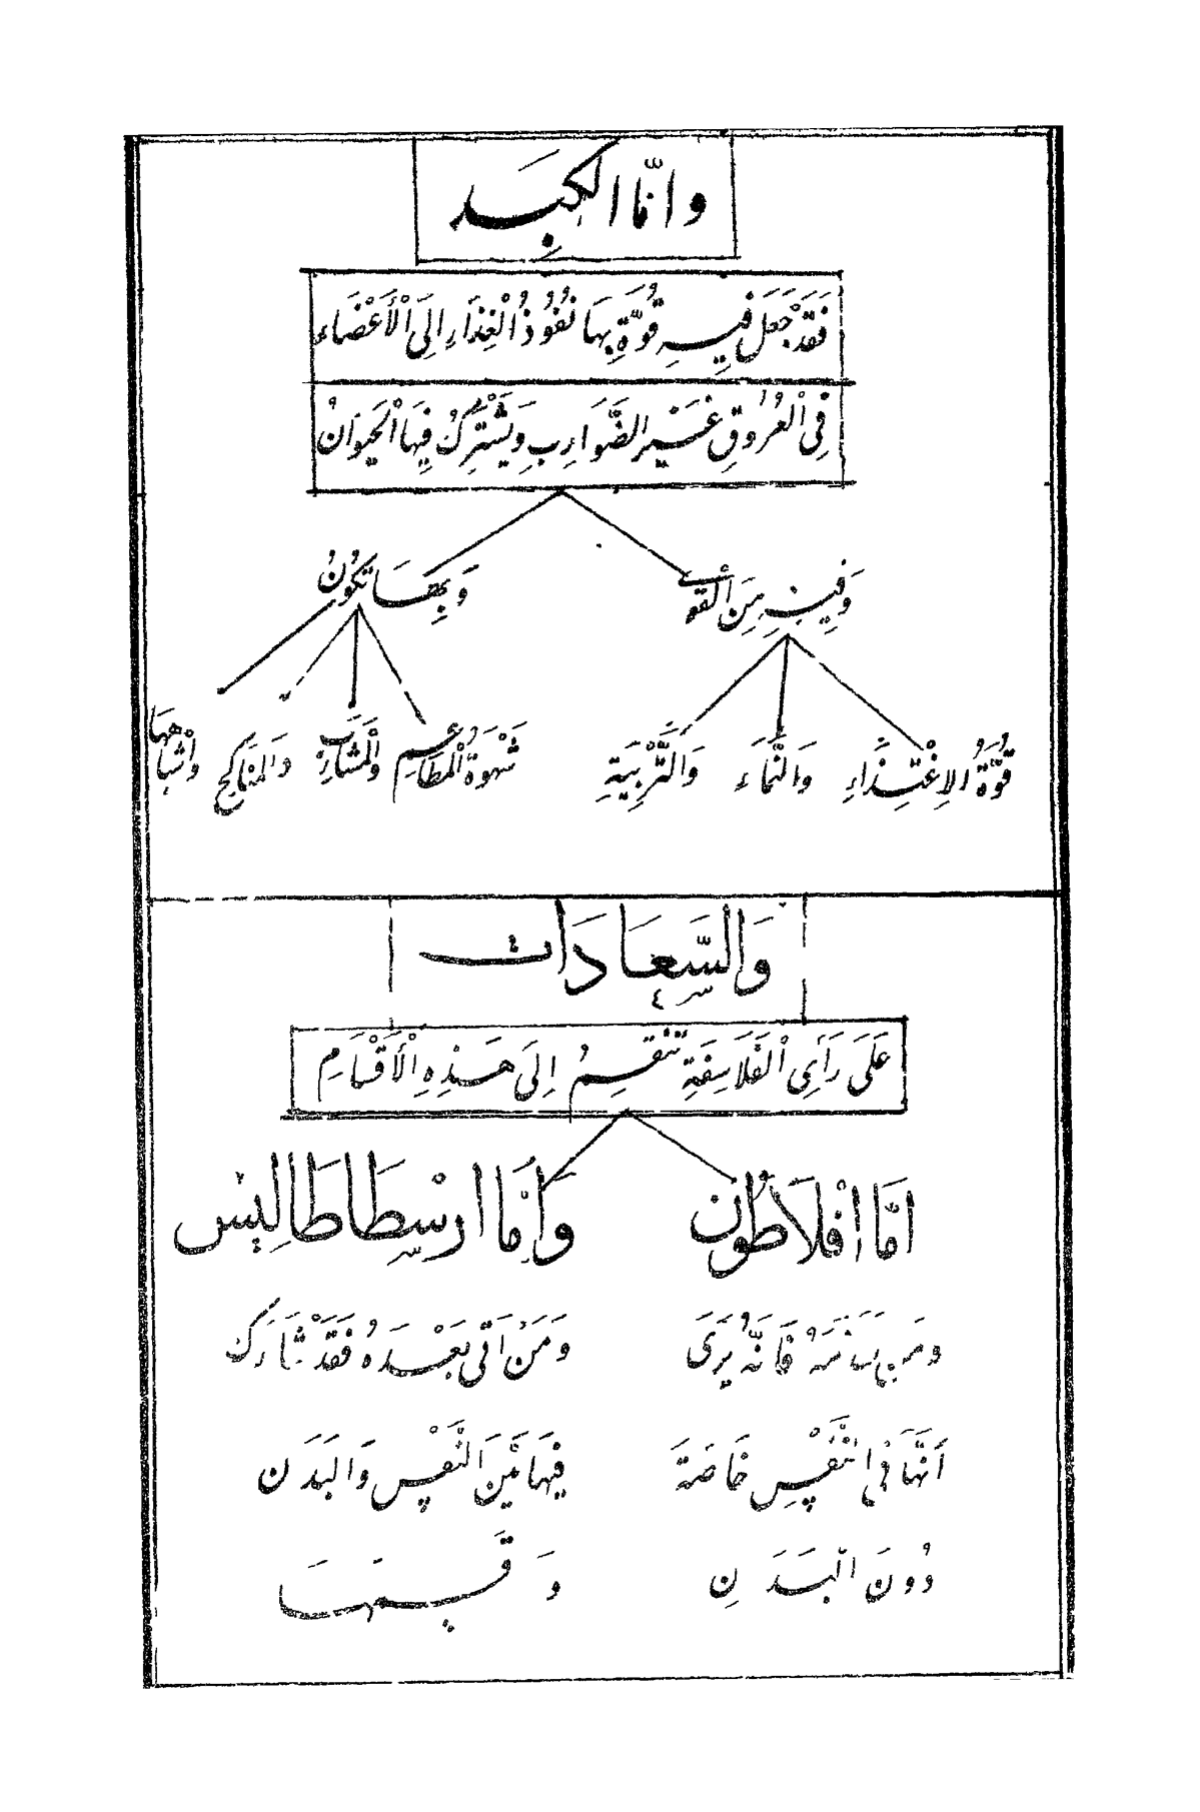 وَأَمَّا الكَبِد
فَقَدْ جَعَلَ فِيهِ قُوَّةٍ بِهَا نُفُوذُ الْغِذَاءِ إِلَى الْأَعْضَاء
فِي الْعُرُوقِ غَيْرِ الضَّوَارِبِ وَيَشْتَرِكُ فِيهَا الْحَيَوَانُ
وَفِيهِ مِنَ الْقُوَى
قُوَّةُ الِاغْتِذَاءِ
وَالنَّمَاء
وَالتَّرْبِيَةِ
وَبِهَا تَكُونُ
شَهْوَةُ الْمَطَاعِمِ
وَالْمَشَارِبِ
وَالْمَنَاكِحِ
وَأَشْبَاهِهَا
وَالسَّعَادَات
عَلَى رَأْيِ الْفَلَاسِفَةِ تَنْقَسِمُ إِلَى هَذِهِ الْأَقْسَامِ
أَمَّا افْلَاطُون
وَمَن فَإِنَّهُ يَرَى
أَنَّهَا فِي النَّفْسِ خَاصَةً
دُونَ الْبَدَنِ
وَأَمَّا ارِسْطَاطَالِيس
وَمَنْ أَتَى بَعْدَهُ فَقَدْ شَارَكَ
فِيهَا بَيْنَ النَّفْسِ وَالبَدَن
وَقَسِمَهَا